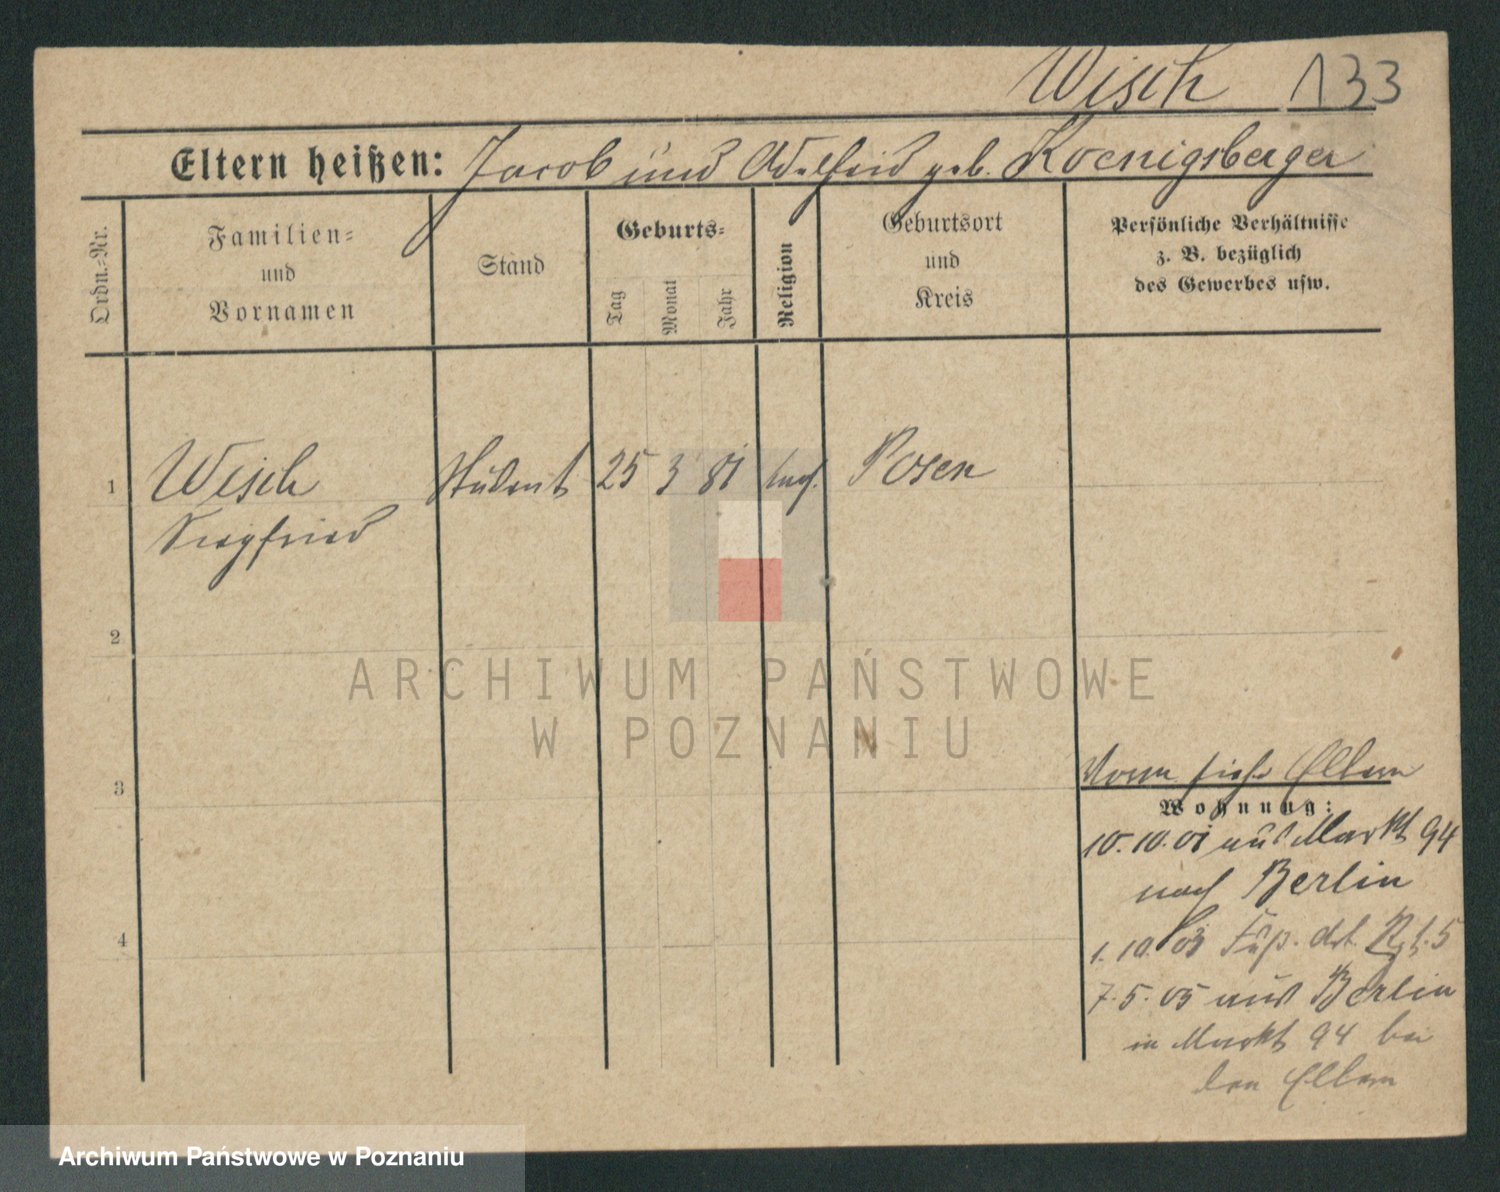 Wisch 133
Eltern heißen: Jacob und Adelheid geb. Koenigsberger
Ordn.-Nr.
Familien-
und
Vornamen
Stand
Geburts-
Tag
Monat
Jahr
Religion
Geburtsort
und
Kreis
Persönliche Verhältnisse
z. B. bezüglich
des Gewerbes usw.
1 Wisch Student 25 3 81 Posen
Siegfried
2
3
4
Vorm siehe Eltern
Wohnung:
10.10.01 aus Markt 94
nach Berlin
1.10.03 Art. Rgt. 5
7.5.05 aus Berlin
in Markt 94 bei
den Eltern
ARCHIWUM PAŃSTWOWE
W POZNANIU
Archiwum Państwowe w Poznaniu